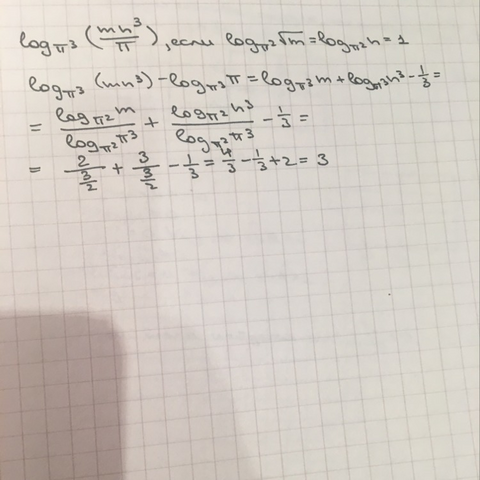 log_{π³} (mn³/π), если log_{π²} √m = log_{π²} n = 1
log_{π³} (mn³) - log_{π³} π = log_{π³} m + log_{π³} n³ - 1/3 =
= log_{π²} m / log_{π²} π³ + log_{π²} n³ / log_{π²} π³ - 1/3 =
= 2/(3/2) + 3/(3/2) - 1/3 = 4/3 - 1/3 + 2 = 3